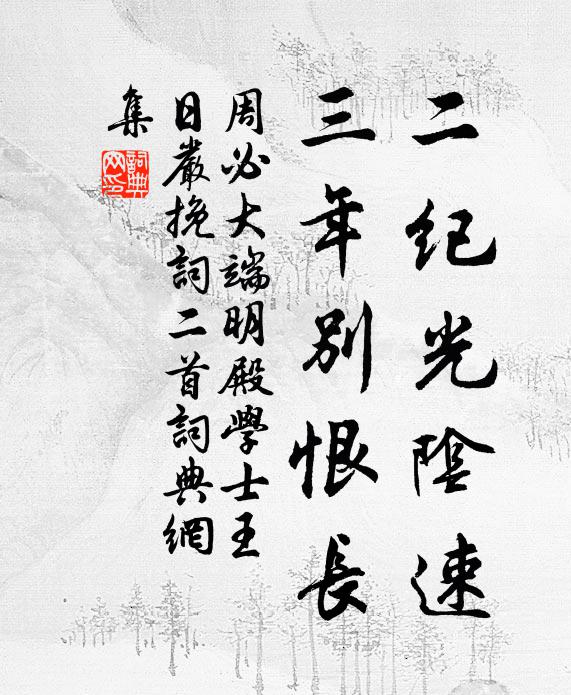 二纪光陰速
三年別恨長
周必大端明殿學士王
日嚴挽詞二首詞典網
集
詞典网印